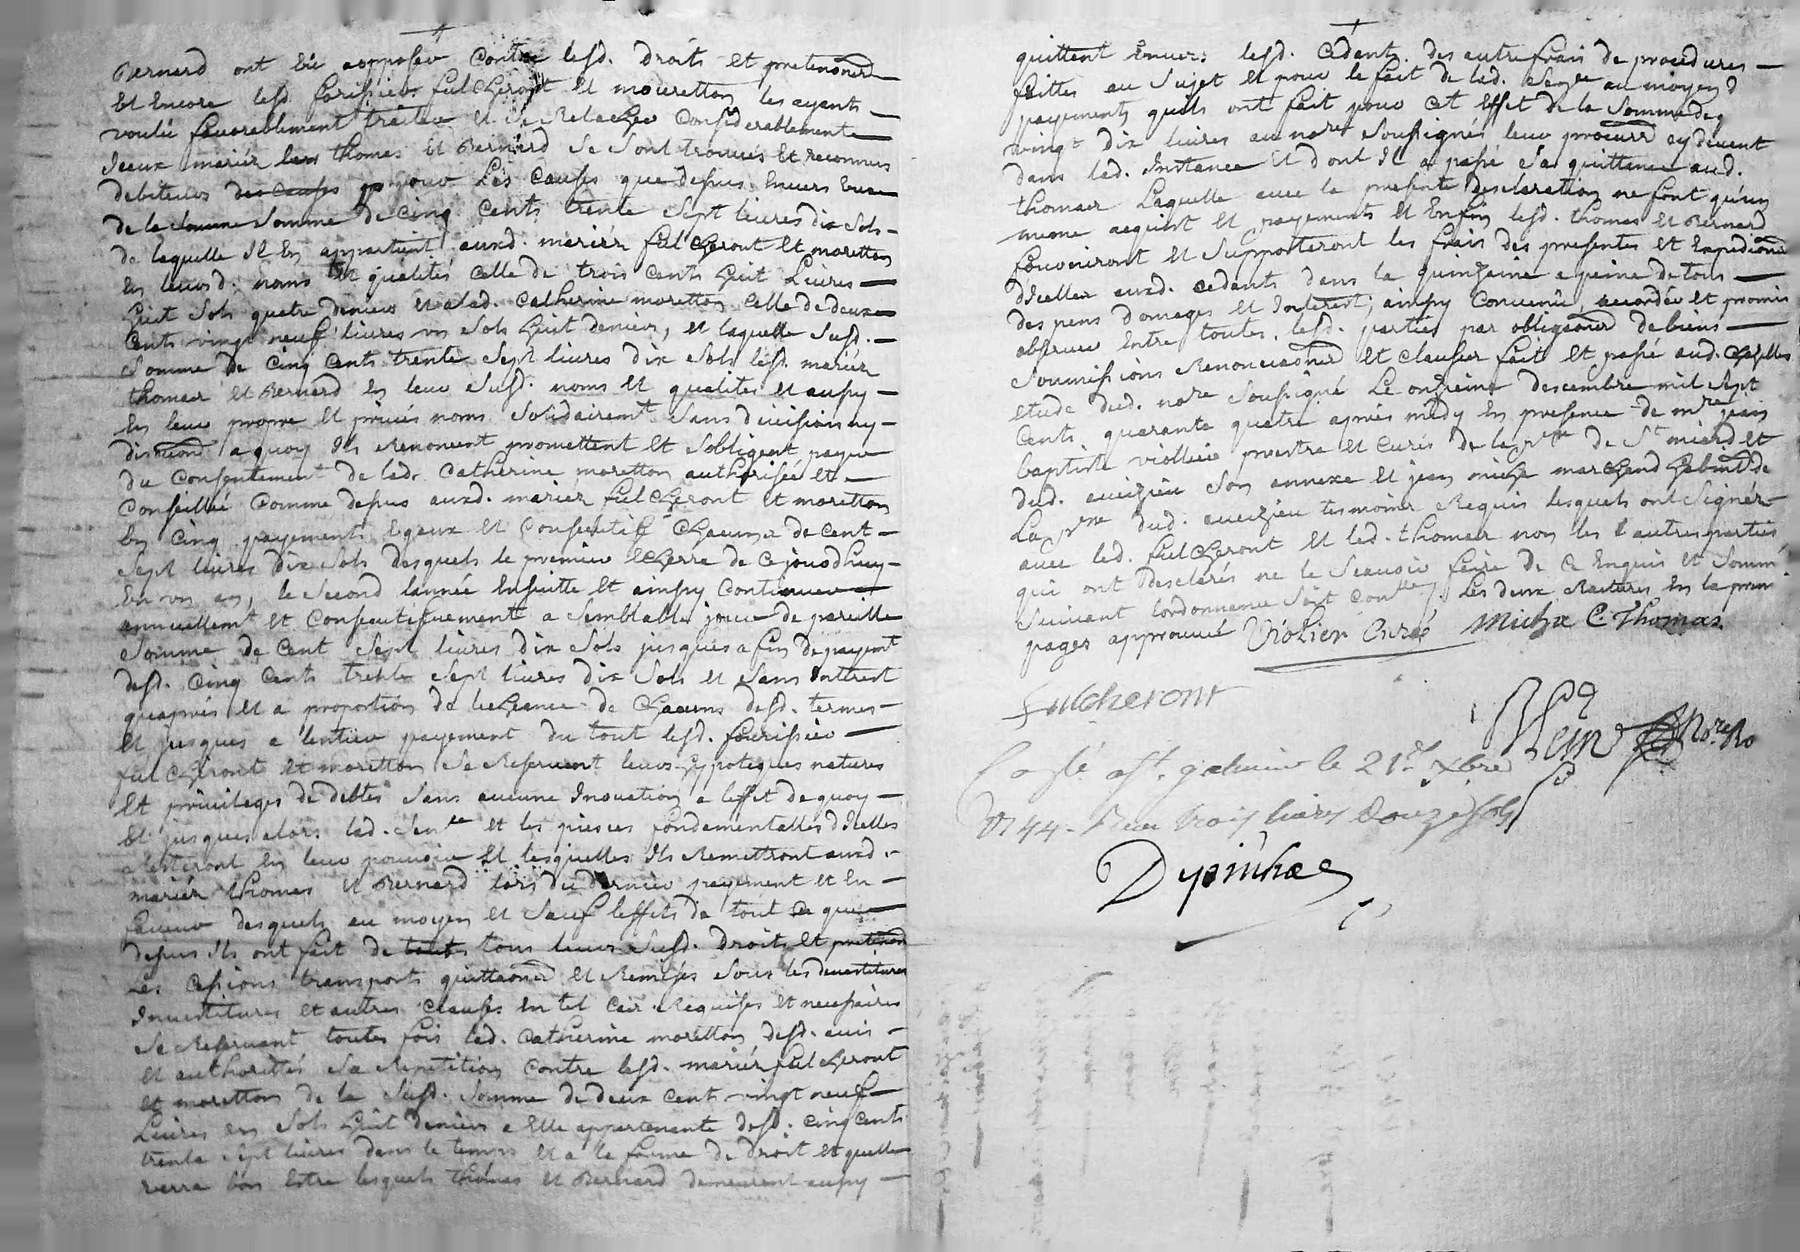 Bernard ont où opposer contre lesd. droits et pretentions
et encore lesd. Fulcheront et moretton les ayants
voulu favorablement traiter et se Relacher considerablement
iceux mariér thomas et Bernard se sont trouvés et reconnus
debiteurs pour les causes que depuis envers eux
de la somme de cinq cents trente sept livres dix sols
de laquelle il en appartient auxd. mariér fulcheront et moretton
en leursd. noms et qualités celle de trois cents huit Livres
huit sols quatre deniers et a lad. Catherine moretton celle de deux
cents vingt neuf livres un sols huit deniers, et laquelle susd.
somme de cinq cents trente sept livres dix sols lesd. mariér
thomas et Bernard en leur susd. noms et qualités et aussy
en leur propre et privés noms solidairemt sans division ny
discution a quoy ils Renoncent promettent et sobligent payer
du consentement de lad. Catherine moretton authorisée et
conseillée comme depus auxd. mariér fulcheront et moretton
en cinq payements egaux et consecutifs chacuns de cent
sept livres dix sols desquels le premier echerra de ce jourdhuy
en un an, le second lannée ensuitte et ainsy continuer
annuellemt et consecutifvement a semblable jour de pareille
somme de cent sept livres dix sols jusques a fin de payemt
desd. cinq cents trente sept livres dix sols et sans interest
quaprés et a proportion de lecheance de chacuns desd. termes
et jusques a lentier payement du tout lesd.
fulcheront et moretton se Reservent leurs hypoteques natures
et privileges de debtes sans aucune Inovation a leffet de quoy
et jusques alors lad. Sence et les pieces fondamentalles dicelles
resteront en leur pouvoir et lesquelles ils Remettront auxd.
mariér thomas et Bernard lors du dernier payement et en
faveur desquels au moyen et sauf leffets de tout ce que
depus ils ont fait de tous leurs susd. droits et pretentions
les cessions transports quittances et Remises sous les devestitures
Investitures et autres clauses en tel cas Requises et necessaires
se Reservant toutes fois lad. Catherine moretton desd. avis
et authorittés sa Repetition contre lesd. mariér fulcheront
et moretton de la susd. somme de deux cent vingt neuf
Livres un sols huit deniers a elle appartenante desd. cinq cents
trente sept livres dans le temps et a la forme de droit et quelle
verra bon estre lesquels thomas et Bernard demeurent aussy
quittent envers lesd. Cedants des autre frais de procedures
faittes au sujet et pour le fait de lad. Sence au moyen d
payements quils ont fait pour cet effet de la somme de
vingt dix livres au nore soussignés leur procurr cy devent
dans lad. Instance et dont il a passé sa quittance aud.
thomas Laquelle avec la presente desclaration ne font qu'un
meme acquist et payements et enfin lesd. thomas et Bernard
fourniront et supporteront les frais des presentes et expeditions
dicelles auxd. cedants dans la quinzaine a peine de tous
despens domages et Interest; ainsy convenu, accordée et promis
observer entre toutes lesd. parties par obligations de biens
soumissions Renonciations et clauses fait et passé aud. Chazelles
etude dud. nore soussigné Le onzeime descembre mil sept
cents quarante quatre aprés midy en presence de mre jean
baptiste viollier prestre et curés de la pse de St miard et
dud. aveizieu son annexe et jean micha marchand habitt de
La pse dud. aveizieu tesmoins Requis lesquels ont signér
avec led. fulcheront et led. thomas non les autres parties
qui ont desclarés ne le scavoir faire de ce enquis et sommé
suivant lordonnance soit conllé. Les deux Ratures en la premr
pages approuvé Violier Curé Micha C Thomas
Fulcheront
Nore Ro
Conlé à St galmier le 21e xbre
1744. Reçu trois livres douze sols
Depinhac